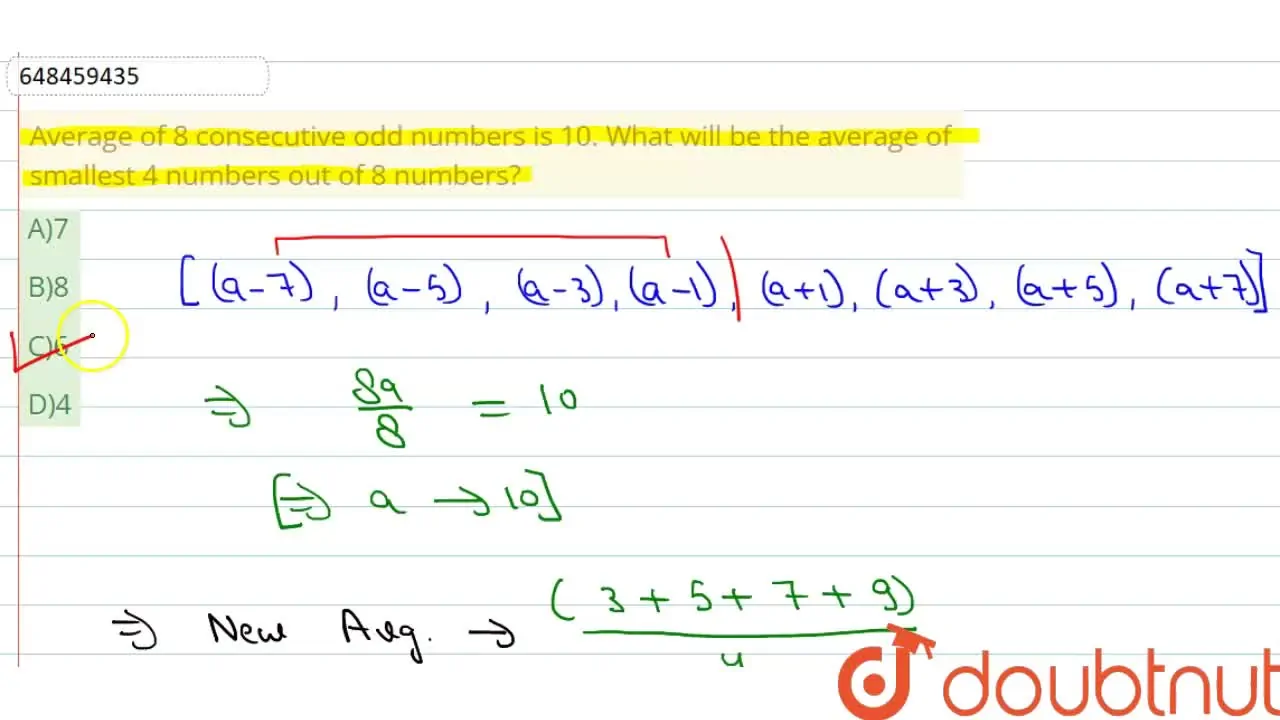 648459435
Average of 8 consecutive odd numbers is 10. What will be the average of
smallest 4 numbers out of 8 numbers?
A)7
B)8
[(a-7), (a-5), (a-3),(a-1), (a+1), (a+3), (a+5), (a+7)]
C)6
D)4
⇒ 8a/8 = 10
[⇒ a → 10]
⇒ New Avg. → (3+5+7+9)/4
doubtnut